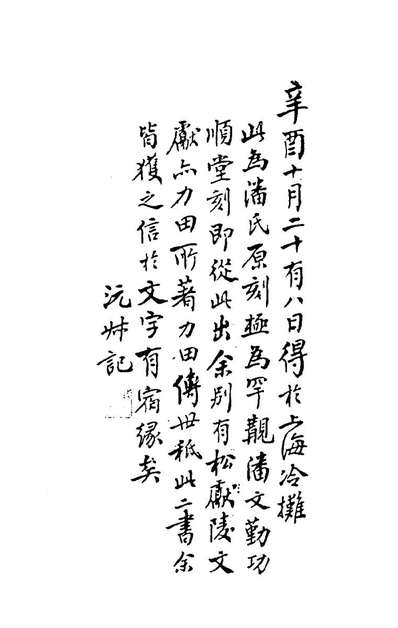 辛酉十月二十有八日得於上海冷攤
此為潘氏原刻極為罕覯潘文勤功
順堂刻即從此出余别有松獻陵文
獻亦力田所著力田傳世秖此二書余
皆獲之信於文字有宿緣矣
沅叔記